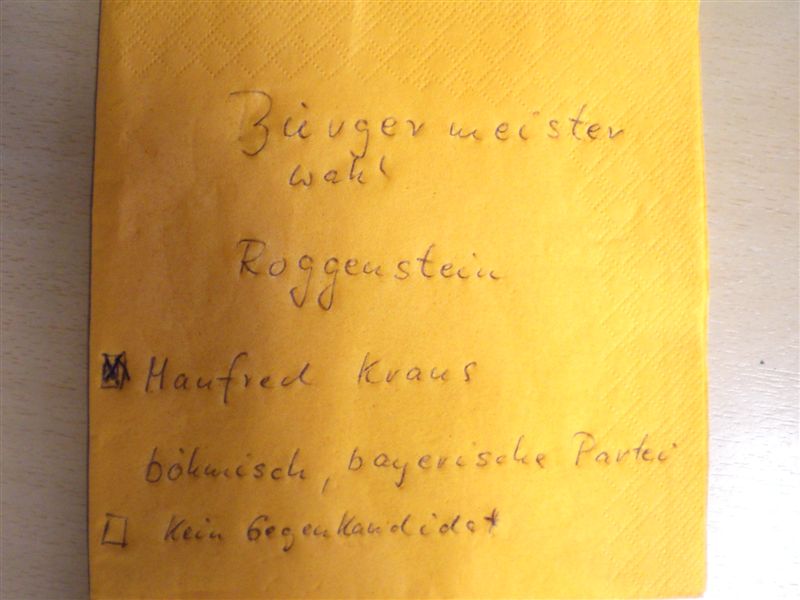 Bürgermeister
wahl
Roggenstein
Manfred Kraus
böhmisch, bayerische Partei
Kein Gegenkandidat